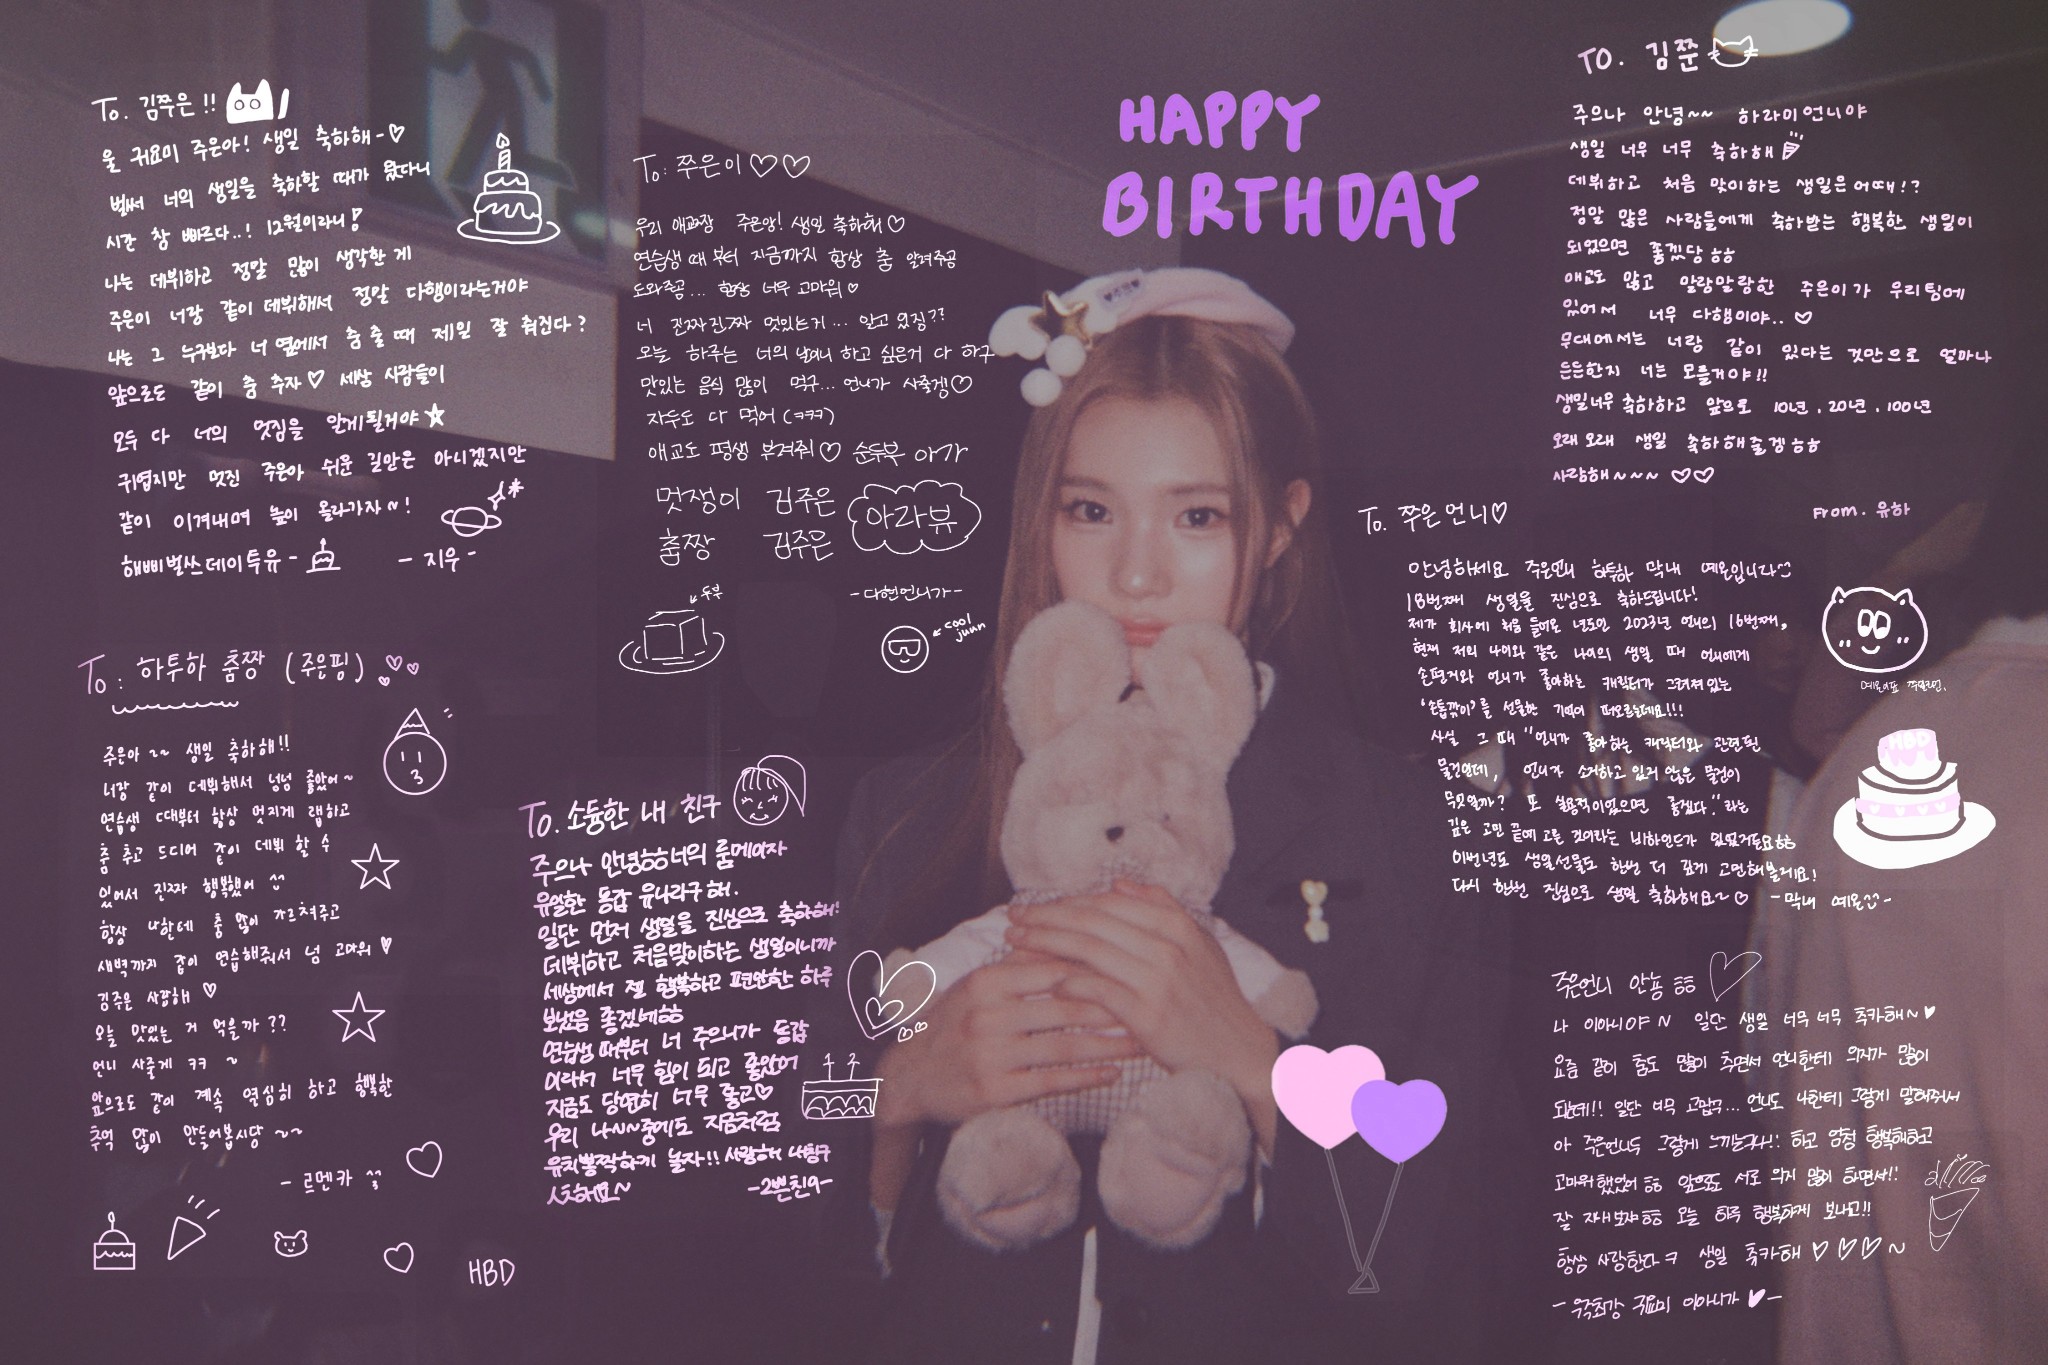 To. 김쭈은!!
울 귀요미 주은아! 생일 축하해-♡
벌써 너의 생일을 축하할 때가 왔다니
시간 참 빠르다..! 12월이라니!
나는 데뷔하고 정말 많이 생각한 게
주은이 너랑 같이 데뷔해서 정말 다행이라는거야
나는 그 누구보다 너 옆에서 춤 출 때 제일 잘 춰진다?
앞으로도 같이 춤 추자♡ 세상 사람들이
모두 다 너의 멋짐을 알게될거야☆
귀엽지만 멋진 주은아 쉬운 길만은 아니겠지만
같이 이겨내며 높이 올라가자~!
해삐벌쓰데이투유-
- 지우 -
To: 쭈은이♡♡
우리 애교짱 주은앙! 생일 축하해♡
연습생 때 부터 지금까지 항상 춤 알려주공
도와주공... 항상 너무 고마워♡
너 진짜진짜 멋있는거... 알고 있징??
오늘 하루는 너의 날이니 하고 싶은거 다 하구
맛있는 음식 많이 먹구... 언니가 사줄겡♡
자두도 다 먹어 (ㅋㅋㅋ)
애교도 평생 부려줘♡ 순두부 아가
멋쟁이 김주은
춤짱 김주은
아라뷰
두부
- 다현언니가 -
cool juun
HAPPY
BIRTHDAY
TO. 김쭌
주으나 안녕~~ 하라미언니야
생일 너무 너무 축하해
데뷔하고 처음 맞이하는 생일은어때!?
정말 많은 사람들에게 축하받는 행복한 생일이
되었으면 좋겠당ㅎㅎ
애교도 많고 말랑말랑한 주은이가 우리팀에
있어서 너무 다행이야..♡
무대에서는 너랑 같이 있다는 것만으로 얼마나
든든한지 너는 모를거야!!
생일너무 축하하고 앞으로 10년, 20년, 100년
오래오래 생일 축하해줄겡ㅎㅎ
사랑해~~~♡♡
From. 유하
To. 쭈은언니♡
안녕하세요 주은언니 하투하 막내 예온입니다
18번째 생일을 진심으로 축하드립니다!
제가 회사에 처음 들어온 년도인 2023년 언니의 16번째,
현재 저의 나이와 같은 나이의 생일 때 언니에게
손편지와 언니가 좋아하는 캐릭터가 그려져있는
'손톱깎이'를 선물한 기억이 떠오르는데요!!!
사실 그 때 "언니가 좋아하는 캐릭터와 관련된
물건인데, 언니가 소지하고 있지 않은 물건이
무엇일까? 또 실용적이었으면 좋겠다."라는
깊은 고민 끝에 고른 것이라는 비하인드가 있었거든요ㅎㅎ
이번년도 생일선물도 한번 더 깊게 고민해볼게요!
다시 한번 진심으로 생일 축하해요~♡
- 막내 예온 -
HBD
To: 하투하 춤짱 (주은핑)
주은아~~ 생일 축하해!!
너랑 같이 데뷔해서 넘넘 좋았어~
연습생 때부터 항상 멋지게 랩하고
춤 추고 드디어 같이 데뷔 할 수
있어서 진짜 행복했어 ^^
항상 나한테 춤 많이 가르쳐주고
새벽까지 같이 연습해줘서 넘 고마워♥
김주은 사랑해 ♡
오늘 맛있는 거 먹을까??
언니 사줄게 ㅋㅋ ~
앞으로도 같이 계속 열심히 하고 행복한
추억 많이 만들어봅시당 ~~
- 르멘카 ^^
HBD
To. 소듕한 내 친구
주으나 안녕ㅎㅎ너의 룸메이자
유일한 동갑 유나라구해.
일단 먼저 생일을 진심으로 축하해!
데뷔하고 처음맞이하는 생일이니까
세상에서 젤 행복하고 편안한 하루
보냈음 좋겠네ㅎㅎ
연습생때부터 너 주으니가 동갑
이라서 너무 힘이 되고 좋았어
지금도 당연히 너무 좋고♡
우리 나~~~중에도 지금처럼
유치뽕짝하게 놀자!! 사랑해 내칭구
-2쁜친9-
주은언니 안뇽 ㅎㅎ
나 이아니야~ 일단 생일 너무 너무 축카해~♥
요즘 같이 춤도 많이 추면서 언니한테 의지가 많이
되는데!! 일단 너무 고맙구... 언니도 나한테 그렇게 말해줘서
아 주은언니도 그렇게 느끼는구나!! 하고 엄청 행복해하고
고마워했었어ㅎㅎ 앞으로도 서로 의지 많이 하면서!!
잘 지내보쟈ㅎㅎ 오늘 하루 행복하게 보내고!!
항상 사랑한다ㅋ 생일 축카해♡♡♡~
- 우주최강 귀요미 이아니가♥-